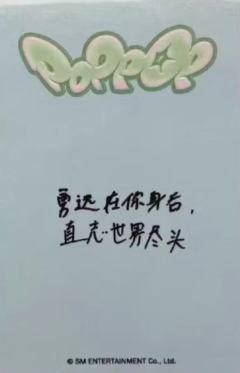 POPPOP
勇远在你身后，
直世界尽头
© SM ENTERTAINMENT Co., Ltd.